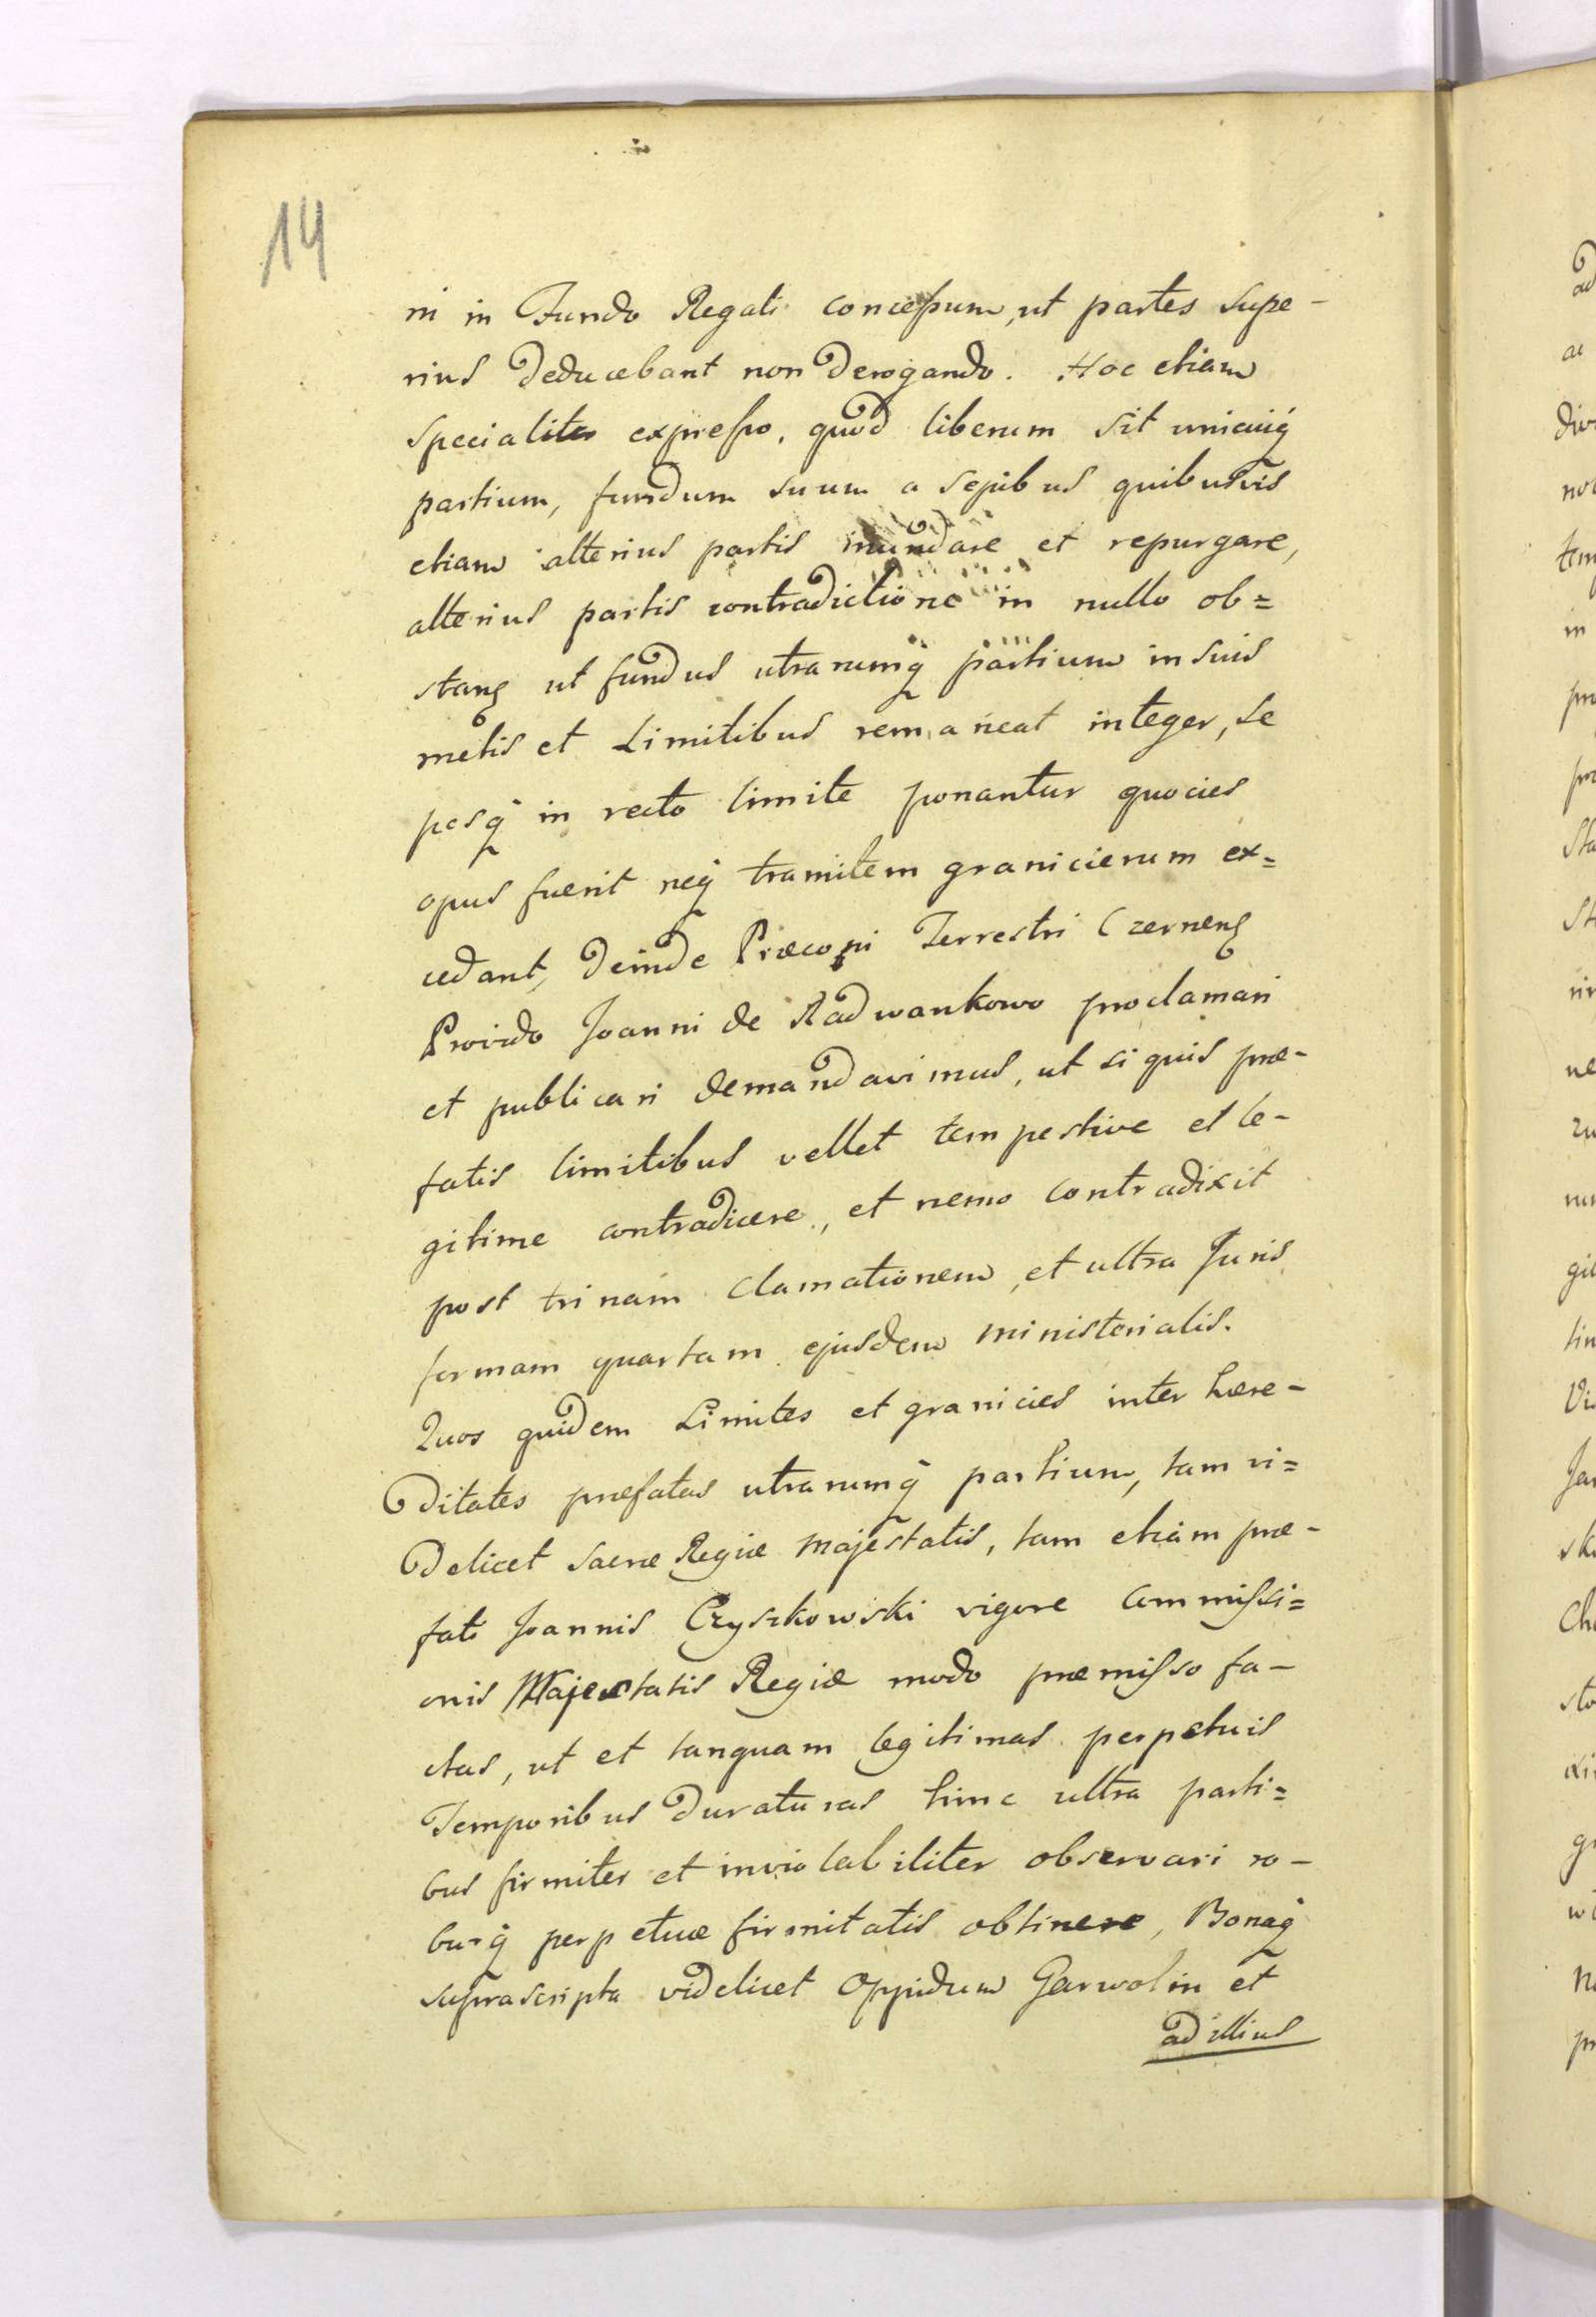 14
ni in Fundo Regali concessum, ut partes supe-
rius deducebant non derogando. Hoc etiam
specialiter expresso, quod liberum sit unicuiq
partium, fundum suum a sepibus quibusvis
etiam alterius partis mundare et repurgare,
alterius partis contradictione in nullo ob=
stanς ut fundus utrarumq partium in suis
metis et Limitibus remaneat integer, se
pesq in recto limite ponantur quocies
opus fuerit neq tramitem granicierum ex=
cedant, deinde Præconi Terrestri Czernenς
Provido Joanni de Radwankowo proclamari
et publicari demandavimus, ut si quis præ-
fatis limitibus vellet tempestive et le-
gitime contradicere, et nemo contradixit
post trinam Clamationem, et ultra Juris
formam quartam ejusdem ministerialis.
Quos quidem Limites et granicies inter hære-
ditates præfatas utrarumq partium, tam vi=
delicet sacræ Regiæ Majestatis, tam etiam præ-
fati Joannis Czyszkowski vigore Commissi=
onis Majestatis Regiæ modo præmisso fa-
ctas, ut et tanquam legitimas perpetuis
Temporibus duraturas hinc ultra parti=
bus firmiter et inviolabiliter observari ro-
burq perpetuæ firmitatis obtinere, Bonaq
suprascripta videlicet Oppidum Garwolin et
ad illius